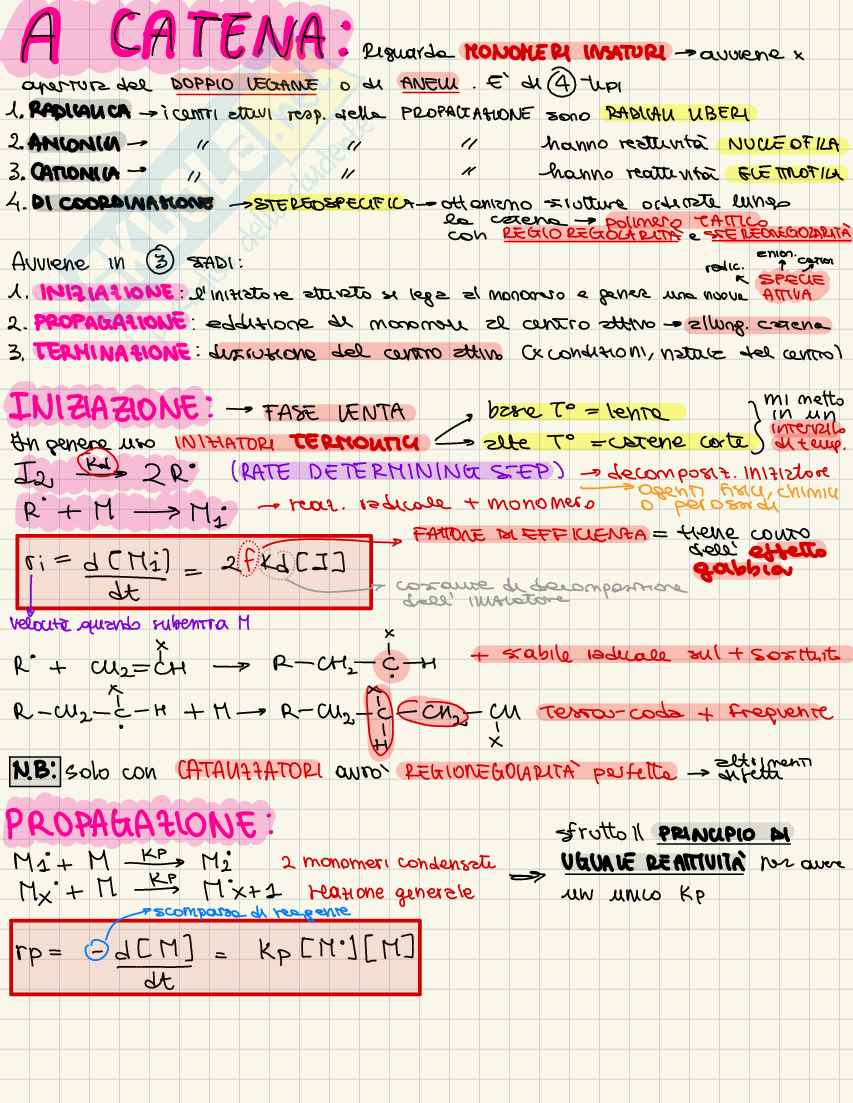 A CATENA: Riguarda MONOMERI INSATURI → avviene x
apertura del DOPPIO LEGAME o di ANELLI. È di 4 tipi
1. RADICALICA → i centri attivi resp. della PROPAGAZIONE sono RADICALI LIBERI
2. ANIONICA → " " " hanno reattività NUCLEOFILA
3. CATIONICA → " " " hanno reattività ELETTROFILA
4. DI COORDINAZIONE → STEREOSPECIFICA → otteniamo strutture ordinate lungo
la catena → polimero TATTICO
con REGIOREGOLARITÀ e STEREOREGOLARITÀ
Avviene in 3 STADI:
radic. anion. cation
1. INIZIAZIONE: l'iniziatore attivato si lega al monomero e genera una nuova SPECIE
ATTIVA
2. PROPAGAZIONE: addizione di monomeri al centro attivo → allung. catena
3. TERMINAZIONE: distruzione del centro attivo (x condizioni, natura del centro)
INIZIAZIONE: → FASE LENTA
basse T° = lenta
alte T° = catene corte
mi metto
in un
intervallo
di temp.
In genere uso INIZIATORI TERMOLITICI
I2 Kd → 2R• (RATE DETERMINING STEP) → decomposiz. iniziatore
→ agenti fisici, chimici
o perossidi
R• + M → M1• → reaz. radicale + monomero
ri = d[M1•]/dt = 2fKd[I]
FATTORE DI EFFICIENZA = tiene conto
dell' effetto
gabbia
costante di decomposizione
dell'iniziatore
velocità quando subentra M
X X
R• + CH2=CH → R-CH2-C•-H + stabile radicale sul + sostituito
X X
R-CH2-C•-H + M → R-CH2-C-CH2-CH testa-coda + frequente
H X
N.B: solo con CATALIZZATORI avrò REGIOREGOLARITÀ perfetta → altrimenti
difetti
PROPAGAZIONE:
M1• + M Kp → M2• 2 monomeri condensati
Mx• + M Kp → M•x+1 reazione generale
⇒ sfrutto il PRINCIPIO DI
UGUALE REATTIVITÀ per avere
un unico Kp
scomparsa di reagente
rp = - d[M]/dt = Kp[M•][M]